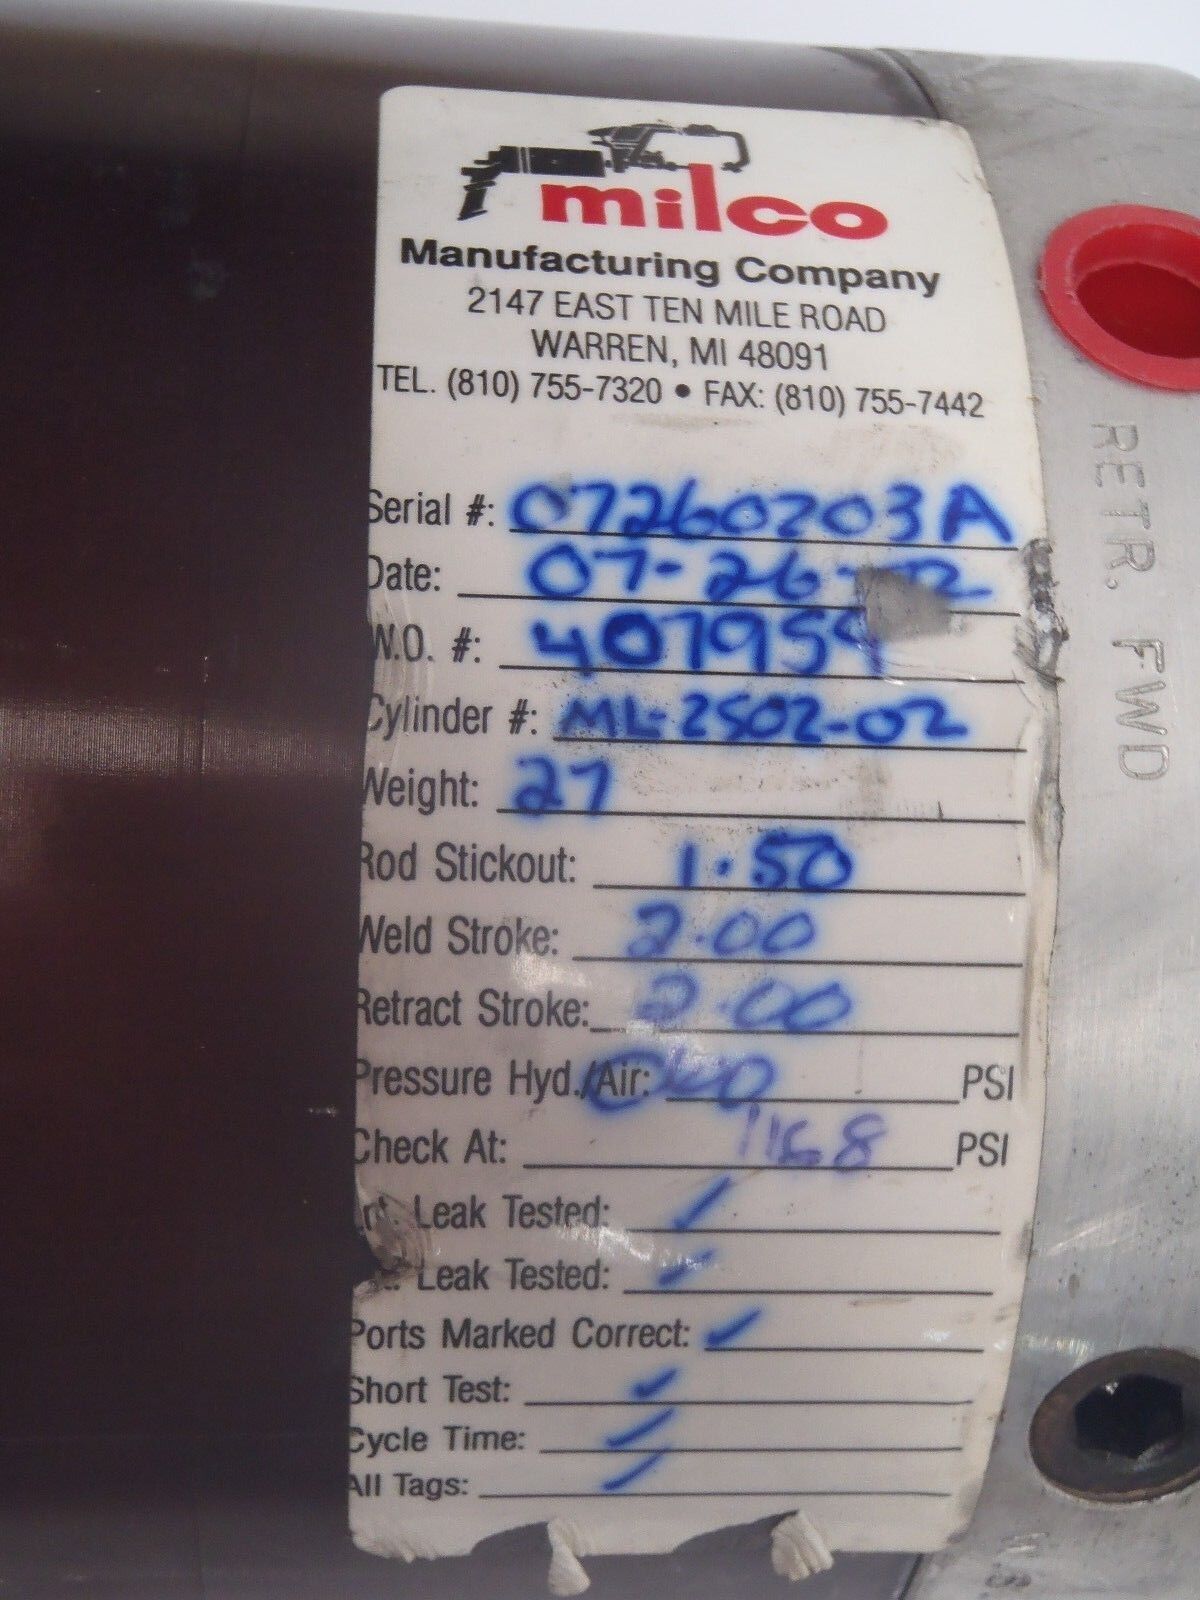 milco
Manufacturing Company
2147 EAST TEN MILE ROAD
WARREN, MI 48091
TEL. (810) 755-7320 • FAX: (810) 755-7442
Serial #: 07260203A
Date: 07-26-02
W.O. #: 407959
Cylinder #: ML-2502-02
Weight: 27
Rod Stickout: 1.50
Weld Stroke: 2.00
Retract Stroke: 2.00
Pressure Hyd./Air: PSI
Check At: 1168 PSI
Leak Tested: /
Leak Tested: /
Ports Marked Correct: ✓
Short Test: ✓
Cycle Time: /
All Tags: /
RETR. FWD